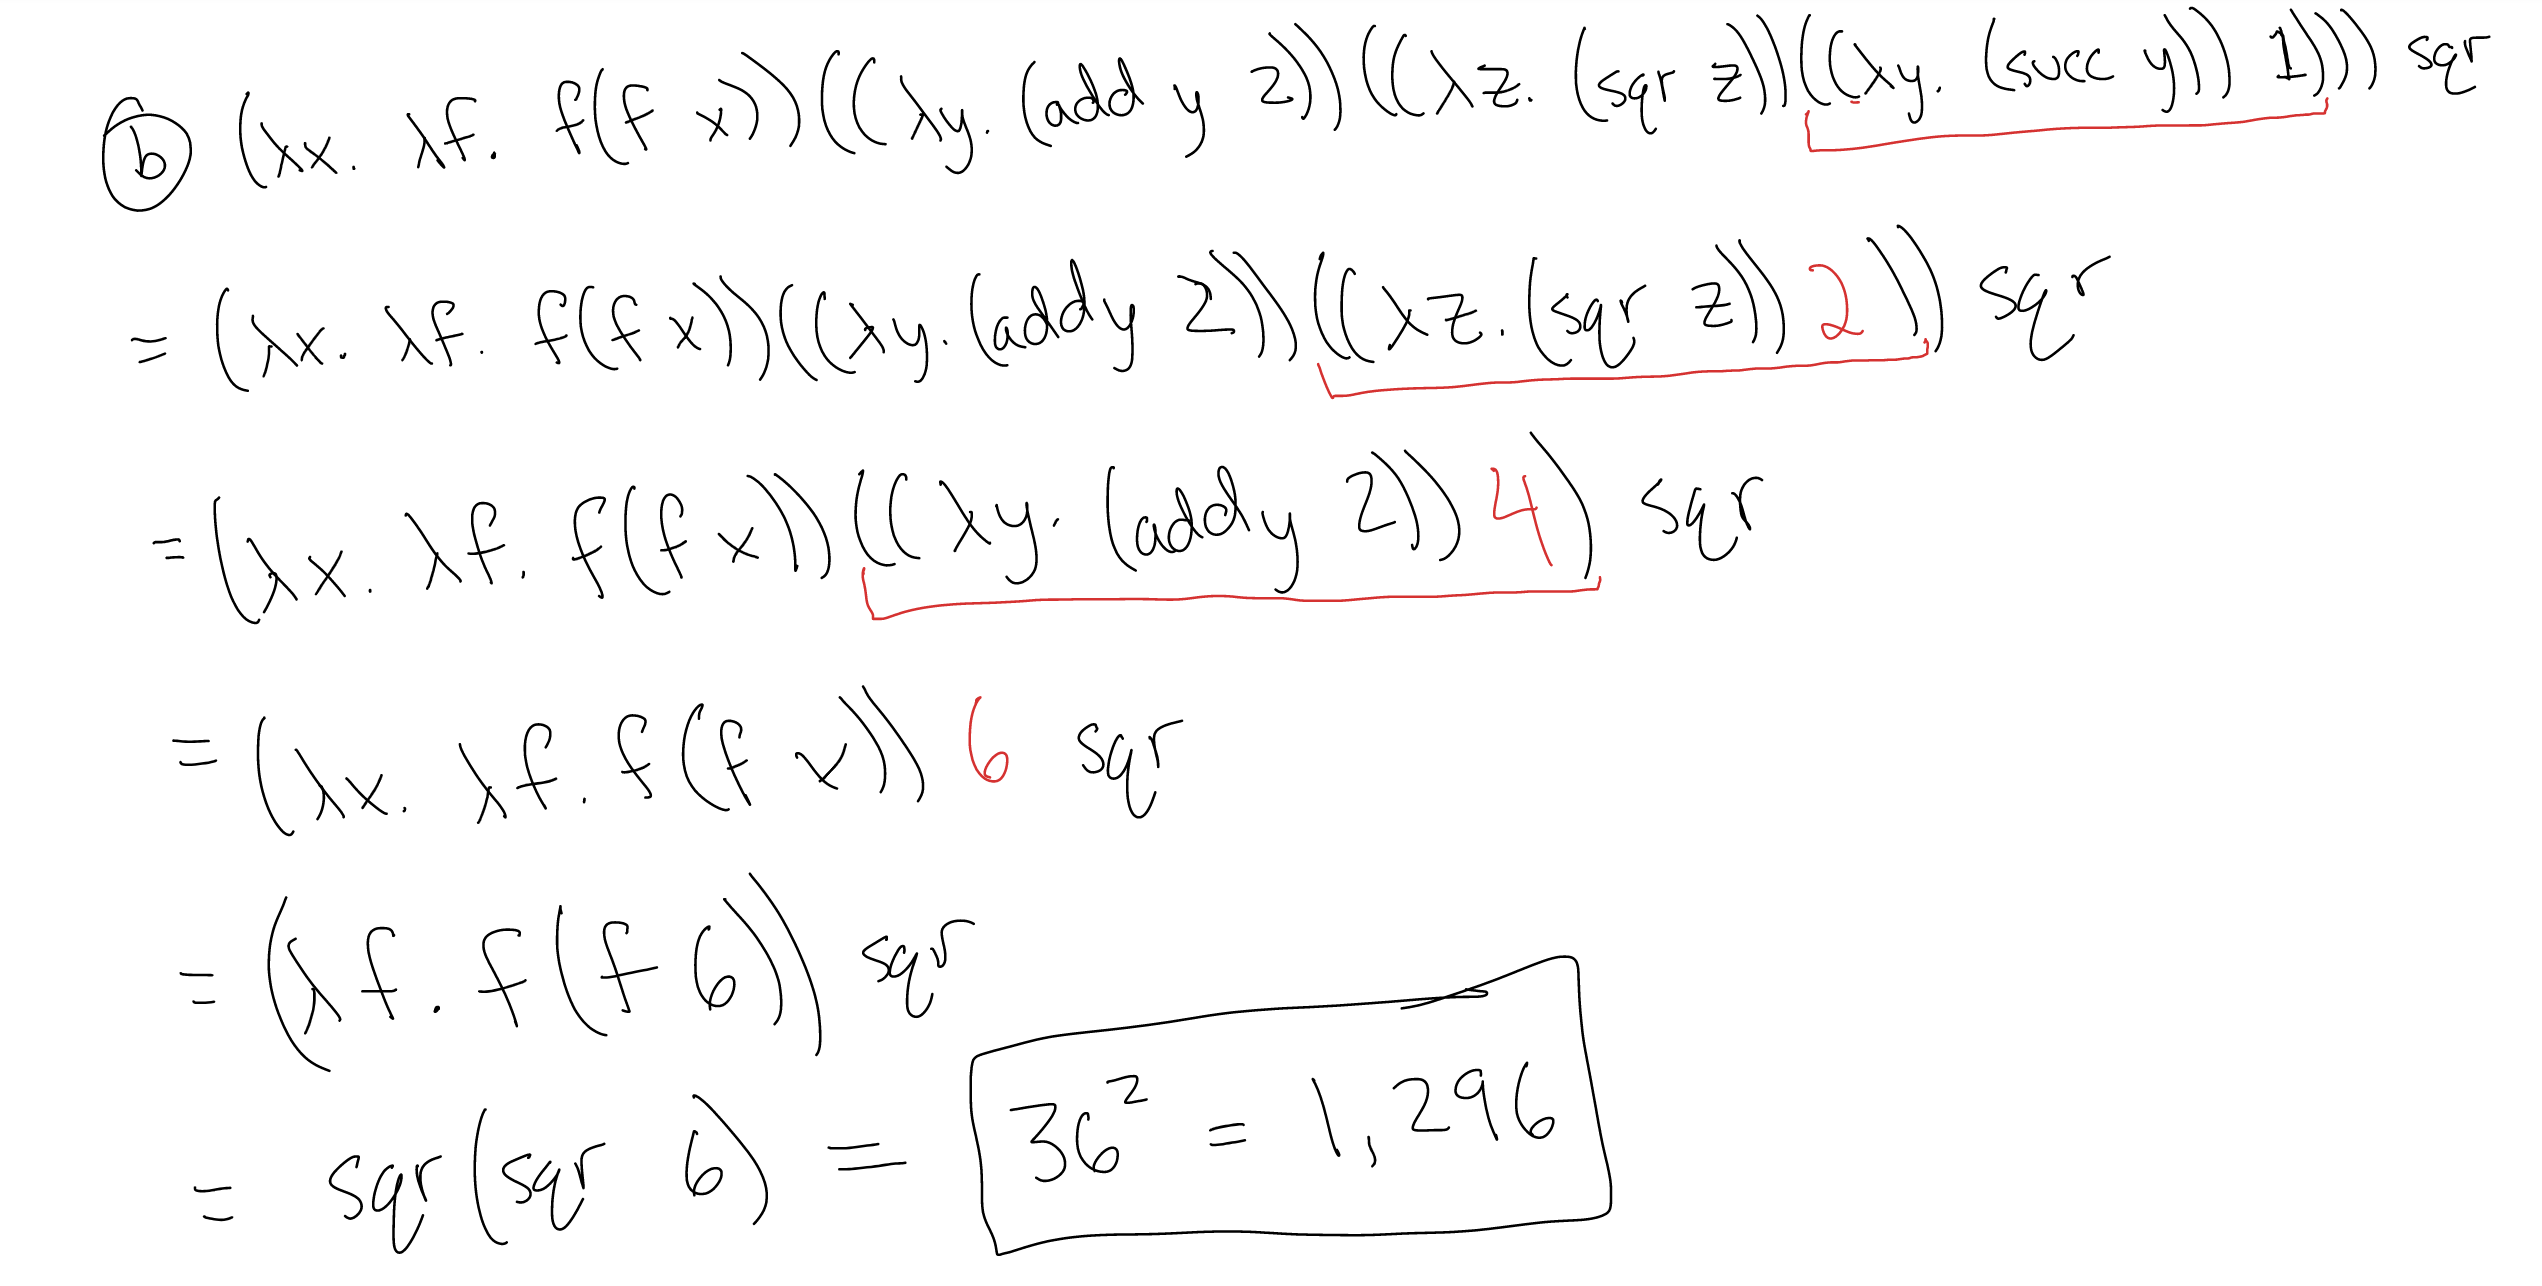 ⓑ (λx. λf. f(f x))((λy. (add y 2))((λz. (sqr z))((λy. (succ y)) 1))) sqr
= (λx. λf. f(f x))((λy. (add y 2))((λz. (sqr z)) 2)) sqr
= (λx. λf. f(f x))((λy. (add y 2)) 4) sqr
= (λx. λf. f(f x)) 6 sqr
= (λf. f(f 6)) sqr
= sqr(sqr 6) = 36² = 1,296